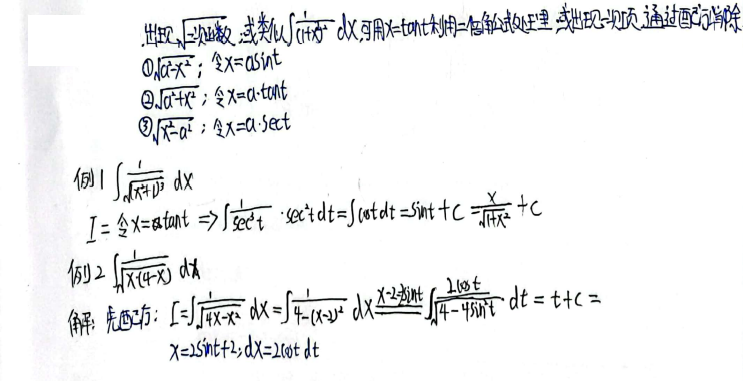 出现√二次函数,或类似∫1/(1+x²)² dx,可用x=tant利用二倍角公式处理,或出现一次项,通过配方消除
①√a²-x² ; 令x=asint
②√a²+x² ; 令x=a·tant
③√x²-a² ; 令x=a·sect
例1 ∫1/√(x²+1)³ dx
I= 令x=tant ⇒ ∫1/sec³t ·sec²t dt=∫cost dt=sint+C=x/√1+x² +C
例2 ∫1/√x(4-x) dx
解: 先配方: I=∫1/√4x-x² dx=∫1/√4-(x-2)² dx x-2=2sint ∫2cost/√4-4sin²t ·dt=t+C=
x=2sint+2; dx=2cost dt